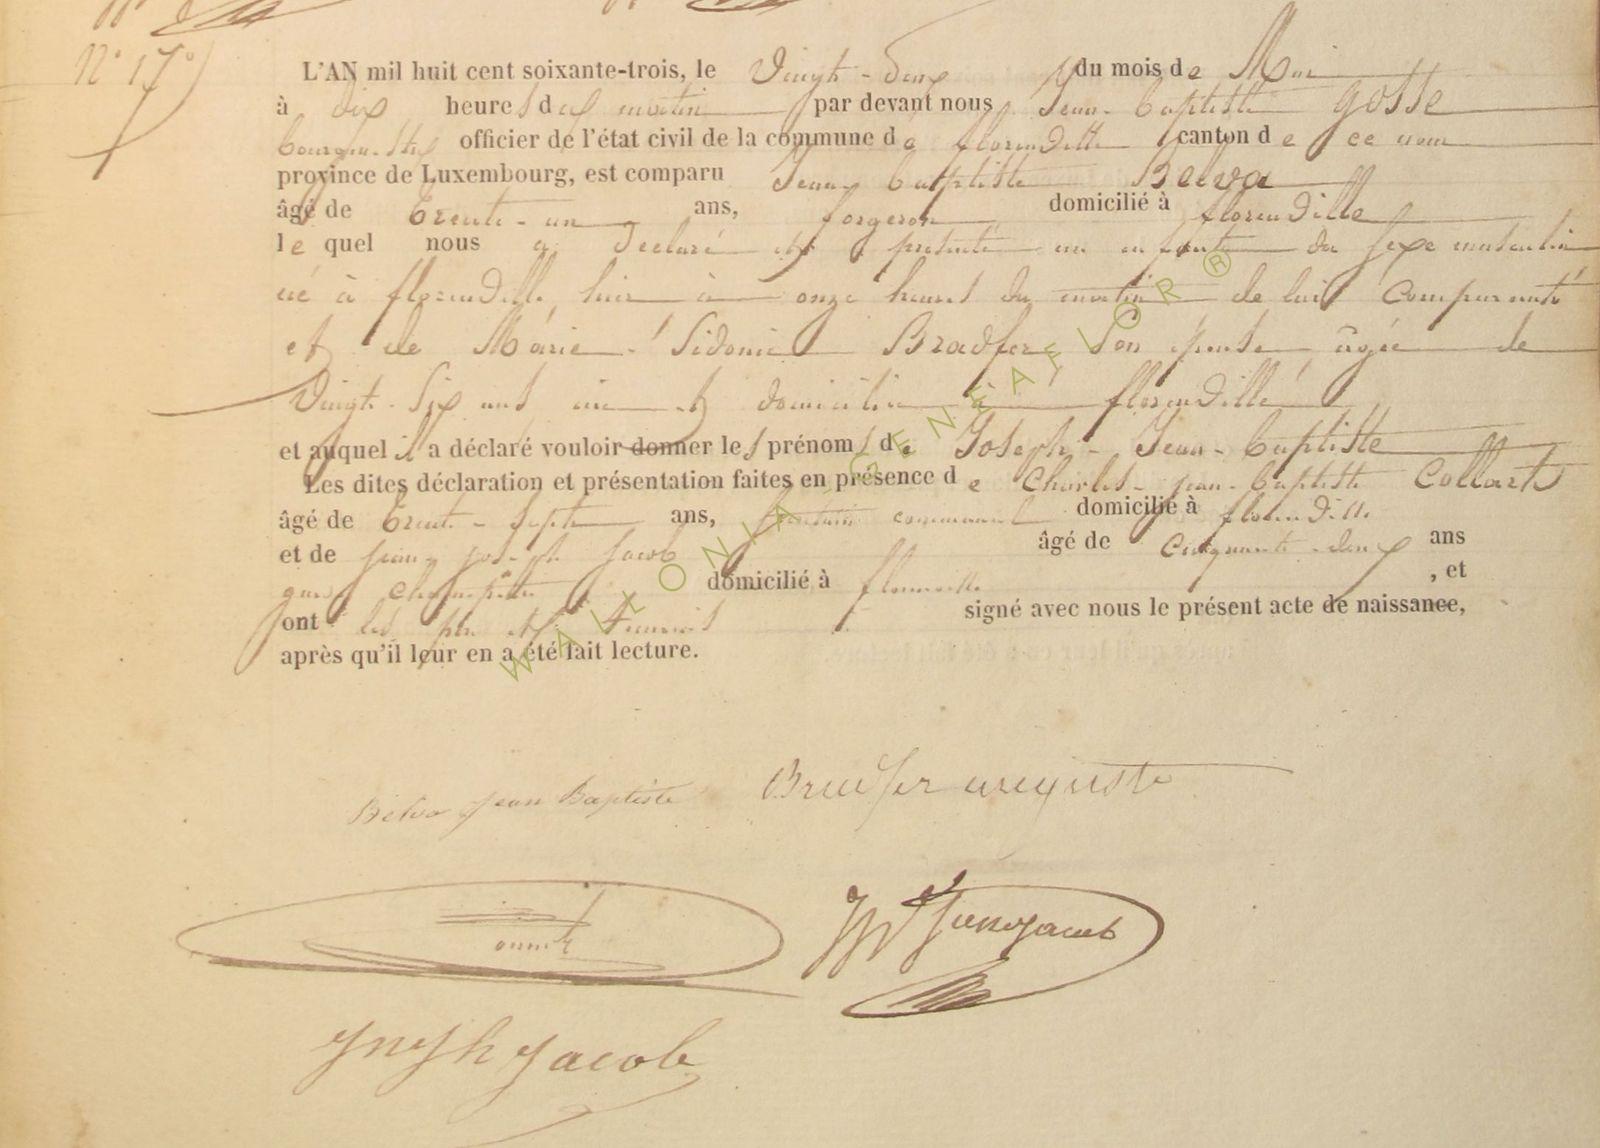 N° 17°
L'AN mil huit cent soixante-trois, le Vingt-deux du mois de Mai
à dix heures du matin par devant nous Jean-Baptiste Gosse
bourgmestre officier de l'état civil de la commune de florenville canton de ce nom
province de Luxembourg, est comparu Jean Baptiste Belva
âgé de trente-un ans, forgeron domicilié à florenville
lequel nous a déclaré et présenté un enfant du sexe masculin
né à florenville, hier à onze heures du matin de lui comparant
et de Marie-Sidonie Bradfer son épouse, âgée de
Vingt-six ans née et domiciliée à florenville
et auquel il a déclaré vouloir donner les prénoms de Joseph-Jean-Baptiste
Les dites déclaration et présentation faites en présence de Charles-jean-baptiste Collart
âgé de trente-sept ans, domicilié à florenville
et de jean joseph jacob âgé de cinquante-deux ans
garde champêtre domicilié à florenville , et
ont les père et témoins signé avec nous le présent acte de naissance,
après qu'il leur en a été fait lecture.
WALLONIA-GENEAFLOR ®
Belva jean Baptiste Bradfer auguste
jacob